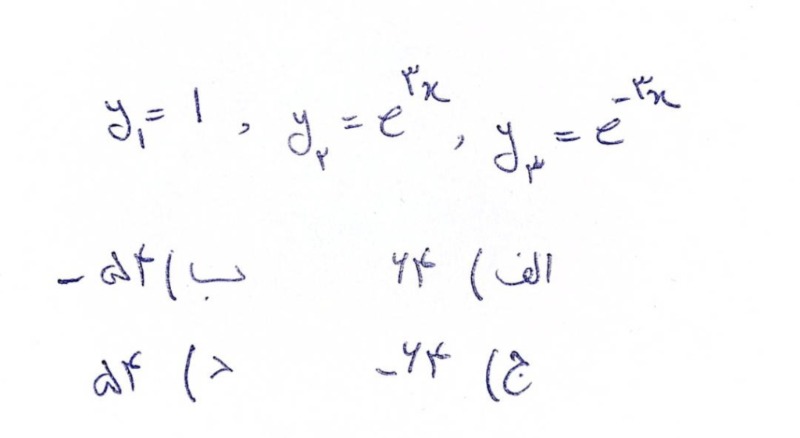 y₁ = ۱ , y₂ = e^۳x , y₃ = e^-۳x
الف) ۶۴ ب) ۵۴-
ج) ۶۴- د) ۵۴